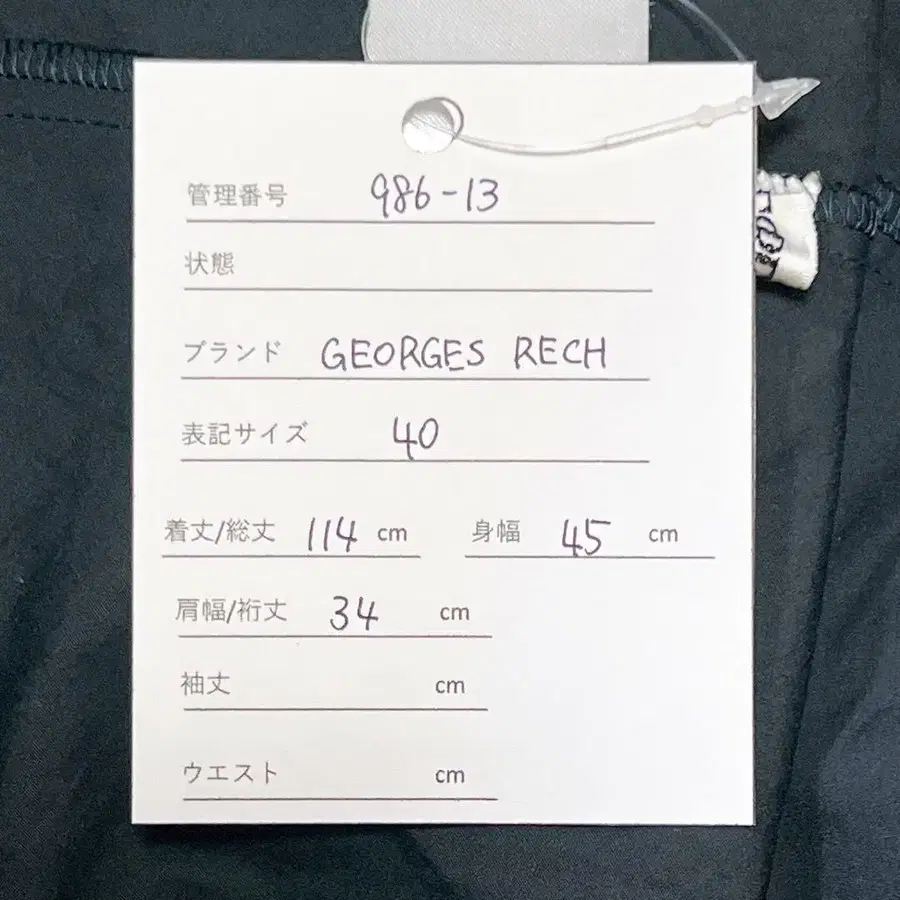 管理番号 986-13
状態
ブランド GEORGES RECH
表記サイズ 40
着丈/総丈 114 cm 身幅 45 cm
肩幅/裄丈 34 cm
袖丈 cm
ウエスト cm